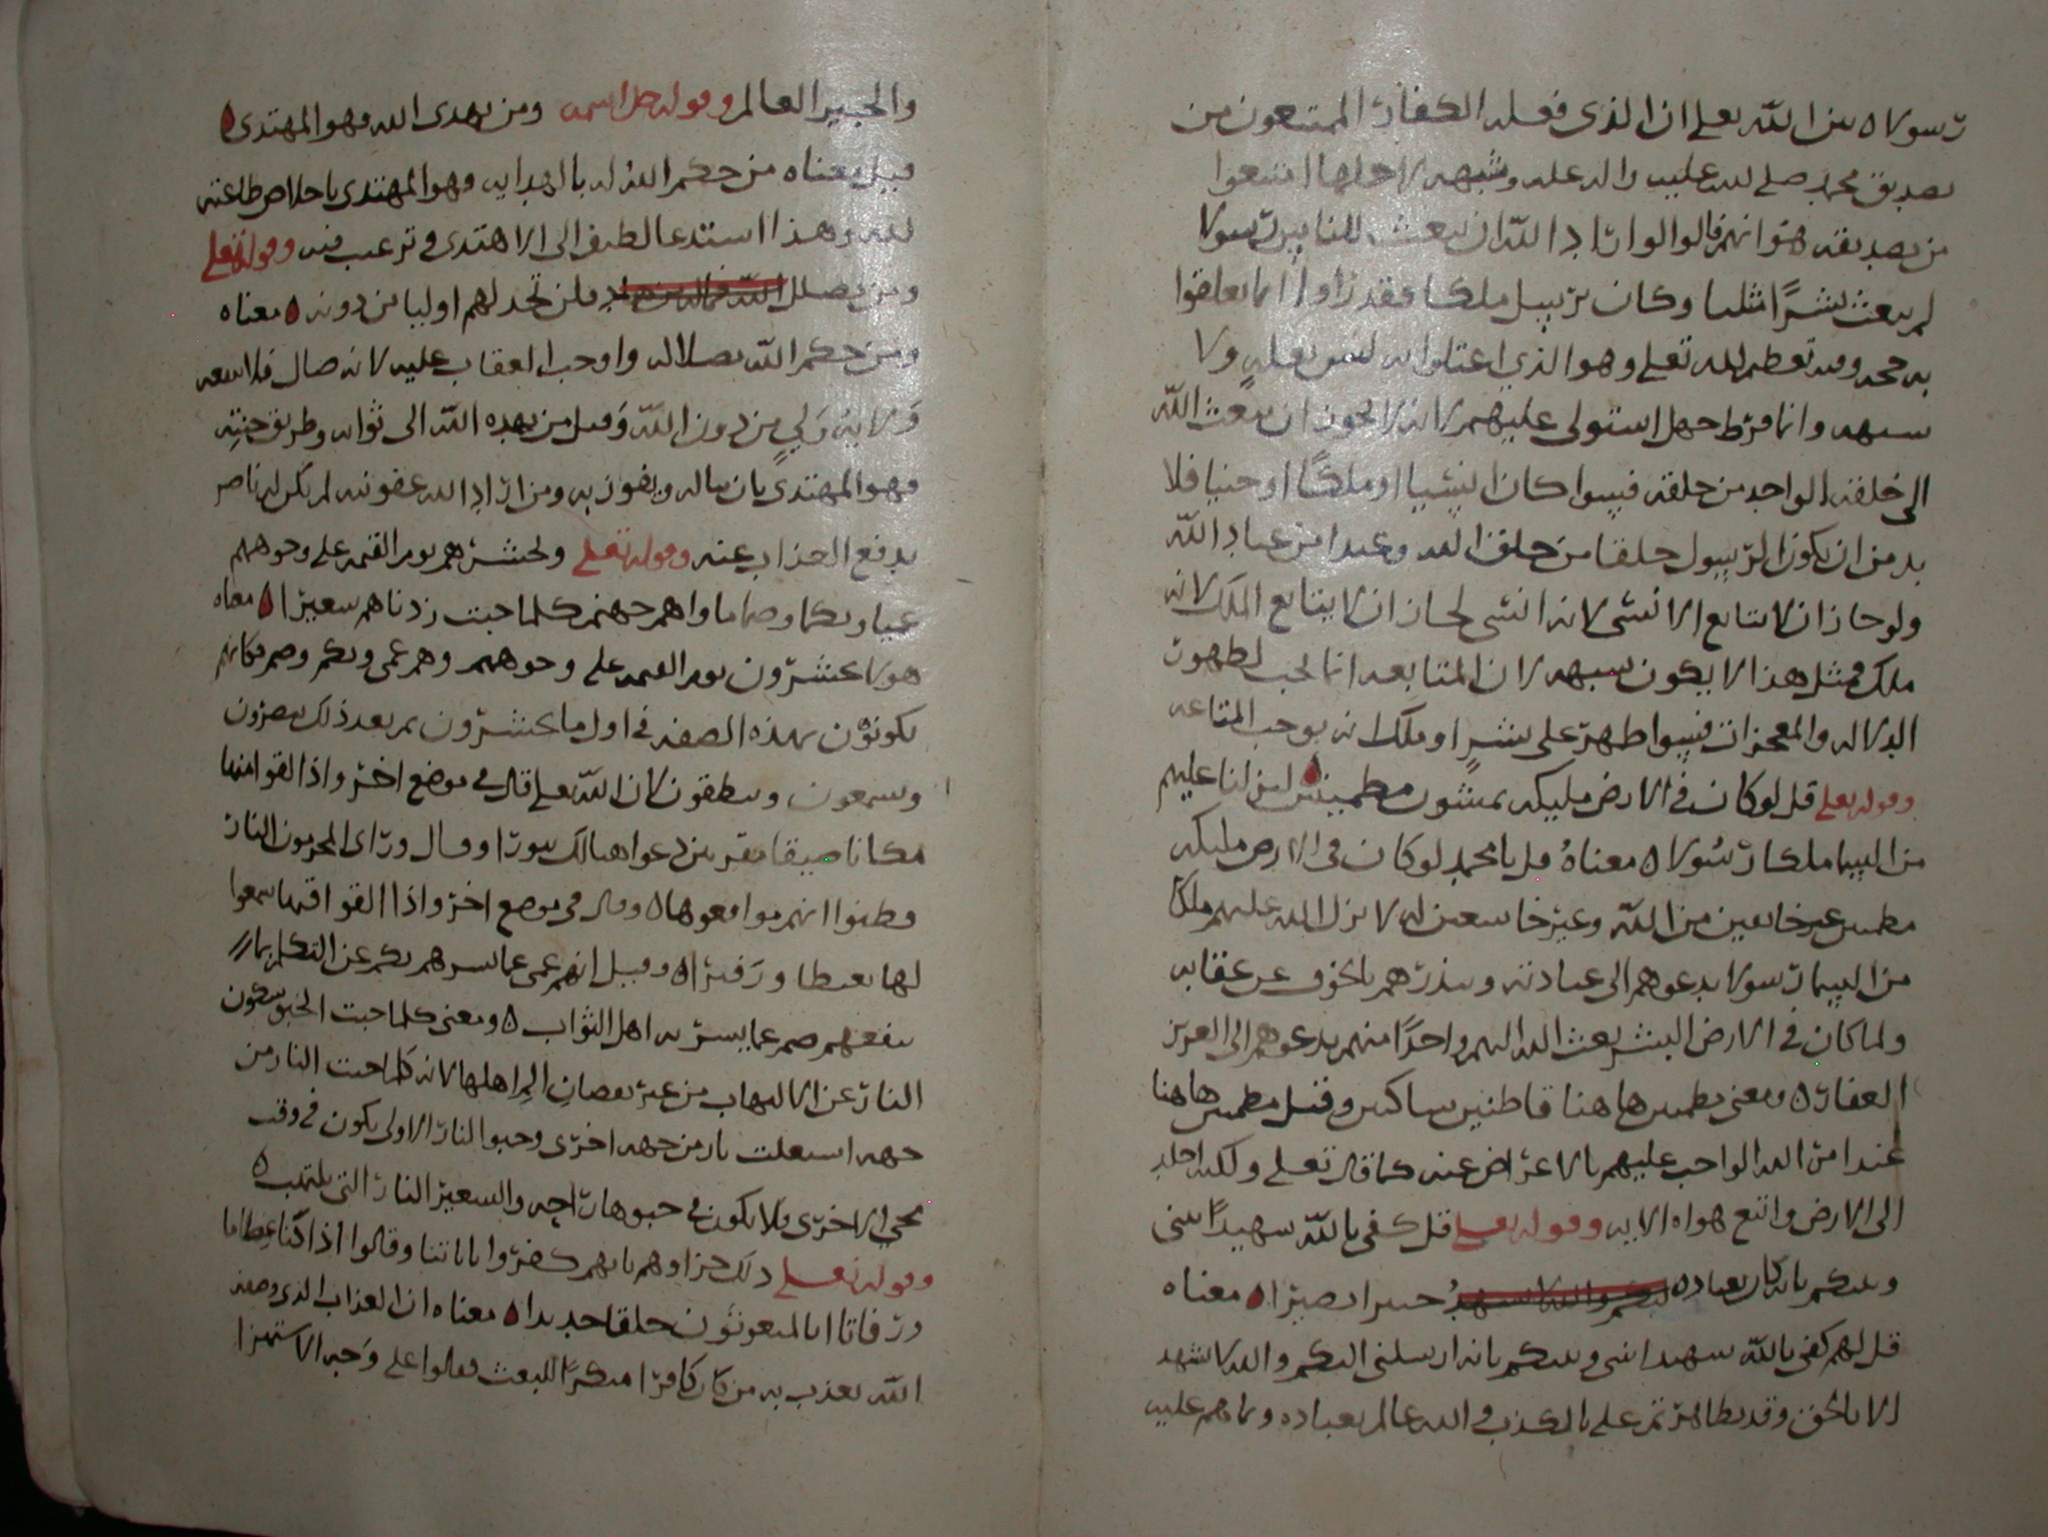 رسولا ٥ بين الله تعلى ان الذى فعله الكفار الممتنعون من
تصديق محمد صلى الله عليه واله علة وشبهة لاجلها امتنعوا
من تصديقه هوانهم قالوا لو اراد الله ان يبعث للنا بين رسولا
لم يبعث بشرًا مثلنا وكان يرسل ملكا فقد زاولا انما تعلقوا
به جحد وفيه تعظيم لله تعلى وهو الذي اعتلوا به ليس بعلة ولا
شبهة وانما فرط جهل استولى عليهم لانه لا يجوز ان يبعث الله
الى خلقه الواحد من خلقه فسوا كان انسيا او ملكًا او جنيا فلا
بد من ان يكون الرسول خلقا من خلق الله وعبدا من عباد الله
ولو جاز ان لا يتابع الانسى لانه انسى لجاز ان لا يتابع الملك لانه
ملك فمثل هذا لا يكون شبهة لان المتابعة انما تجب لظهور
الدلالة والمعجزات فسوا ظهر على بشرٍ او ملك انه يوجب المتابعة
وقوله تعلى قل لو كان في الارض مليكة يمشون مطمينين لنزلنا عليهم
من السما ملكا رسُولا ٥ معناهُ قل يا محمد لو كان في الارض مليكة
مطمينين غير خايفين من الله وغير خاشعين له لانزل الله عليهم ملكا
من السما رسولا يدعوهم الى عبادته وينذرهم بالخوف عن عقابه
ولما كان في الارض البشر بعث الله اليهم واحدًا منهم يدعوهم الى العزيز
الغفار ٥ ومعنى مطمينين هاهنا قاطنين ساكنين وقيل مطمينين هاهنا
عندا من الله الواجب عليهم بالاعراض عنه كما قال تعلى ولكنه اخلد
الى الارض واتبع هواه الاية وقوله تعلى قل كفى بالله شهيدًا بينى
وبينكم انه كان بعباده خبيرا بصيرا ٥ معناه
قل لهم كفى بالله شهيدا بينى وبينكم بانه ارسلنى اليكم والله لا يشهد
الا بالحق وقد تظاهرتم على بالكذب والله عالم بعباده وما هم عليه
والخبير العالم وقوله جل اسمه ومن يهدى الله فهو المهتدى ٥
قيل معناه من حكم الله له بالهداية فهو المهتدى باخلاص طاعته
لله وهذا استدعا لطيف الى الاهتدى وترغيب فيه وقوله تعلى
ومن يضلل فلن تجد لهم اوليا من دونه ٥ معناه
ومن حكم الله بضلاله واوجب العقاب عليه لانه ضال فلا ينفعه
وَلاية وَليٍ من دون الله وَقيل من يهده الله الى ثوابه وطريق جنته
فهو المهتدى بان يناله ويفوز به ومن اراد الله عقوبته لم يكن له ناصر
يدفع العذاب عنه وقوله تعلى ونحشرهم يوم القيمة على وجوههم
عميا وبكما وصما ماواهم جهنم كلما خبت زدناهم سعيرا ٥ معناه
هولا يحشرون يوم القيمة على وجوههم وهم عمى وبكم وصم فكانهم
يكونون بهذه الصفة في اول ما يحشرون ثم بعد ذلك يبصرون
ويسمعون وينطقون لان الله تعلى قال في موضع اخر واذا القوا منها
مكانا ضيقا مقرنين دعوا هنالك ثبورا وقال وراى المجرمون النار
فظنوا انهم مواقعوها ٥ وقال في موضع اخر واذا القوا فيها سمعوا
لها تغيظا وزَفيرا ٥ وقيل انهم عمى عما يسرهم بكم عن التكلم بما
ينفعهم صم عما يسر به اهل الثواب ٥ ومعنى كلما خبت الخبو سكون
النار عن الالتهاب من غير نقصان الم اهلها لانه كلما خبت النار من
جهة اشتعلت نار من جهة اخرى وخبو النار الاولى يكون في وقت
مجي الاخرى ولا يكون في خبوها راحة والسعير النار التى يلتهب ٥
وقوله تعلى ذلك جزاوهم بانهم كفروا باياتنا وقالوا اذا كنا عظاما
ورفاتا انا لمبعوثون خلقا جديدا ٥ معناه ان العذاب الذى وصفه
الله يعذب به من كان كافرا منكرًا للبعث فقالوا على وَجه الاستهزا